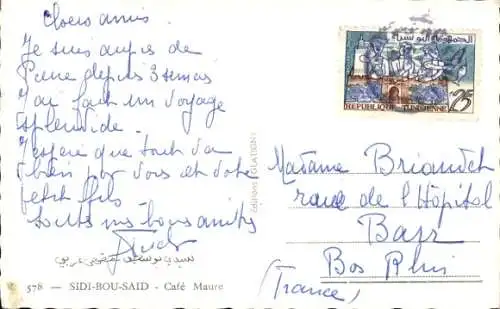 Chers amis
Je suis auprès de
Pierre depuis 3 semaines
J'ai fait un voyage
splendide.
J'espère que tout va
bien pour vous et votre
petit fils
toutes mes bonnes amitiés
سيدي بوسعيد مقهى عربي
578 - SIDI-BOU-SAID - Café Maure
EDITIONS
الجمهورية التونسية
REPUBLIQUE TUNISIENNE
25
Madame
rue de l'Hôpital
Bas Rhin
(France)